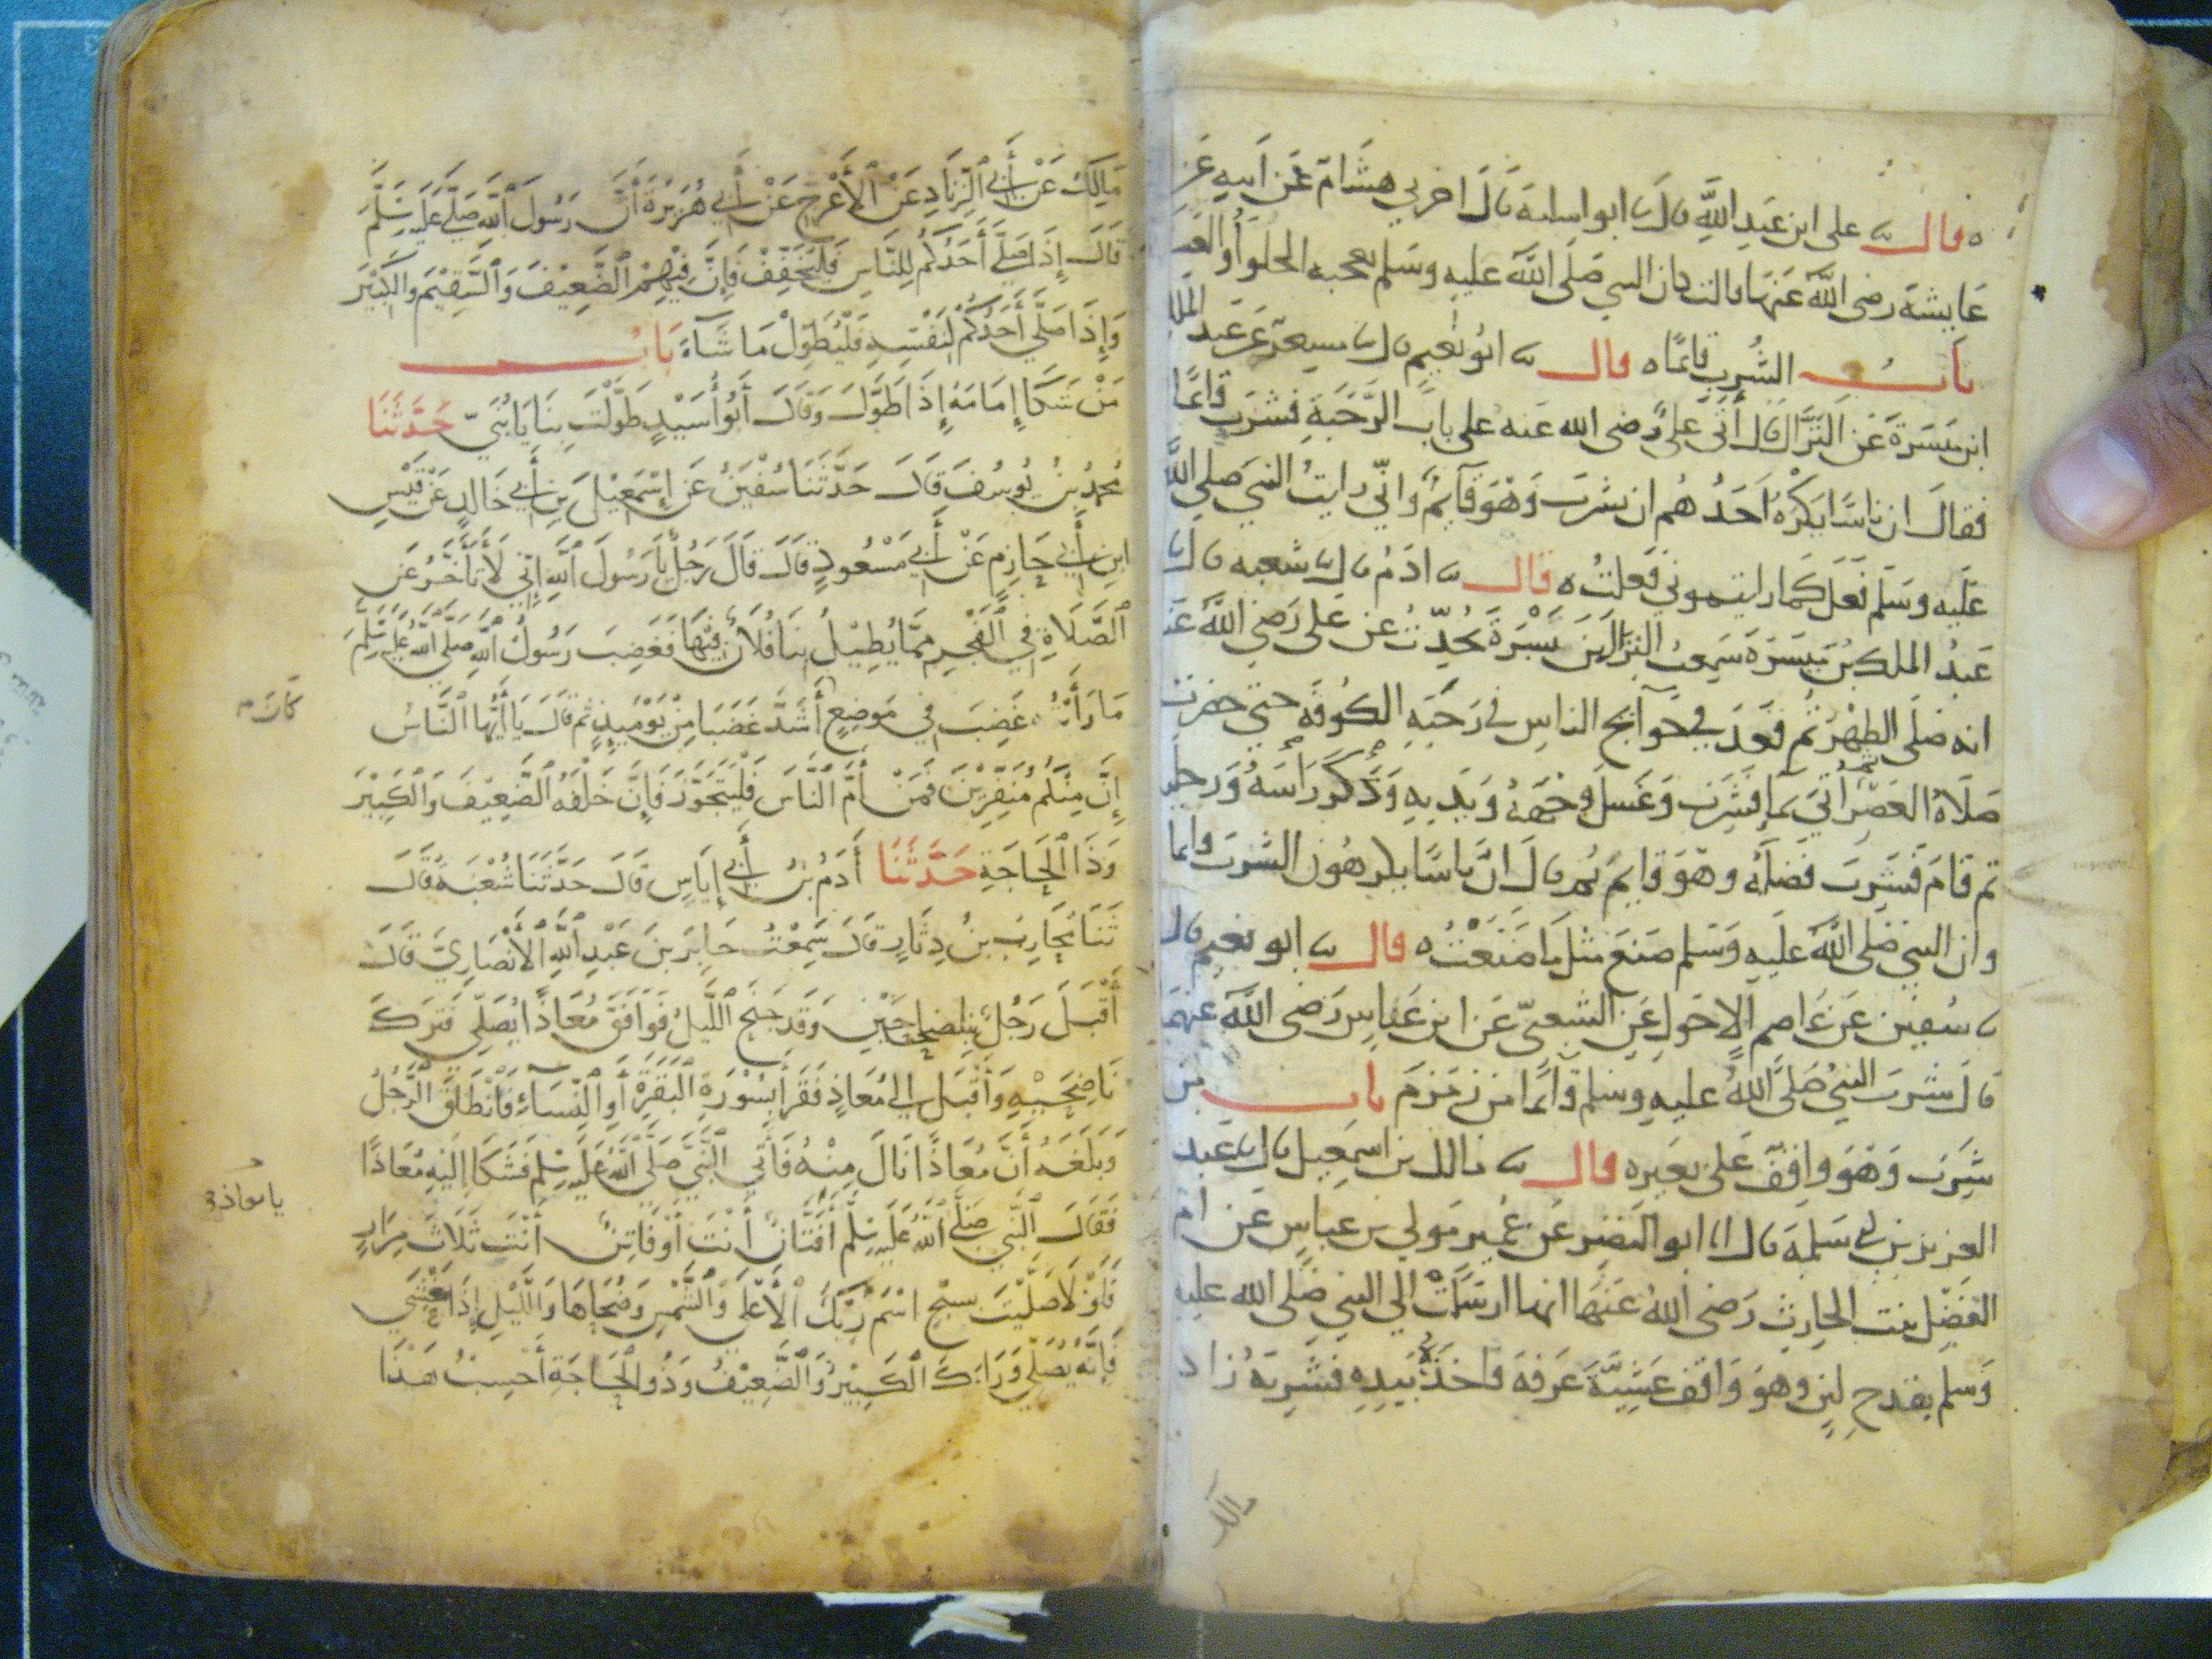 قال نا على ابن عبد الله قال نا ابو اسامة قال اخبرني هشام عن ابيه عن
عايشة رضى الله عنها قالت كان النبي صلى الله عليه وسلم يعجبه الحلوآ والعسل
باب الشرب قائما ه قال نا ابو نعيم قال نا مسعر عن عبد الملك
ابن ميسرة عن النزال قال أتى علي رضى الله عنه على باب الرحبة فشرب قائما
فقال ان ناسا يكره احدهم ان يشرب وهو قآيم وانى رايت النبي صلى الله
عليه وسلم فعل كما رايتمونى فعلت ه قال نا ادم قال نا شعبه قال نا
عبد الملك بن ميسرة سمعت النزال بن سبرة يحدث عن على رضي الله عنه
انه صلى الظهر ثم قعد في حوآيج الناس في رحبة الكوفة حتى حضرت
صلاة العصر ثم أتى بمآء فشرب وغسل وجهه ويديه وذكر رأسه ورجليه
ثم قام فشرب فضله وهو قايم ثم قال ان ناسا يكرهون الشرب قايما
وان النبي صلى الله عليه وسلم صنع مثل ما صنعت ه قال نا ابو نعيم قال
نا سفين عن عاصم الاحول عن الشعبي عن ابن عباس رضى الله عنهما
قال شرب النبي صلى الله عليه وسلم قايما من زمزم باب من
شرب وهو واقف على بعيره قال نا مالك بن اسمعيل قال نا عبد
العزيز بن ابي سلمة قال انا ابو النضر عن عمير مولى بن عباس عن ام
الفضل بنت الحارث رضى الله عنها انها ارسلت الى النبي صلى الله عليه
وسلم بقدح لبن وهو واقف عشية عرفة فاخذه بيده فشربه زاد
مالك
مالك عن أبي الزناد عن الأعرج عن أبي هريرة أن رسول الله صلى عليه سلم
قال إذا صلى أحدكم للناس فليخفف فإن فيهم الضعيف والسقيم والكبير
وإذا صلى أحدكم لنفسه فليطول ما شآء باب
من شكا إمامه إذا طول وقال أبو أسيد طولت بنا يا بني حدثنا
محمد بن يوسف قال حدثنا سفين عن إسمعيل بن أبي خالد عن قيس
ابن أبي حازم عن أبي مسعود قال قال رجل يا رسول الله إني لأتأخر عن
الصلاة في الفجر مما يطيل بنا فلان فيها فغضب رسول الله صلى الله عليه سلم
ما رأيته غضب في موضع أشد غضبا منه يوميذ ثم قال يا أيها الناس
كان م
إن منكم منفرين فمن أم الناس فليتجوز فإن خلفه الضعيف والكبير
وذا الحاجة حدثنا أدم بن أبي إياس قال حدثنا شعبة قال
ثنا محارب بن دثار قال سمعت جابر بن عبد الله الأنصاري قال
أقبل رجل بناضحين وقد جنح الليل فوافق معاذا يصلي فترك
ناضحيه وأقبل إلى معاذ فقرأ بسورة البقرة أو النسآء فانطلق الرجل
وبلغه أن معاذا نال منه فأتي النبي صلى الله عليه سلم فشكا إليه معاذا
فقال النبي صلى الله عليه سلم أفتان أنت أو فاتن أنت ثلاث مرار
يا معاذ
فلولا صليت بسبح اسم ربك الأعلى والشمس وضحاها والليل إذا يغشى
فإنه يصلي ورآءك الكبير والضعيف وذو الحاجة أحسب هذا